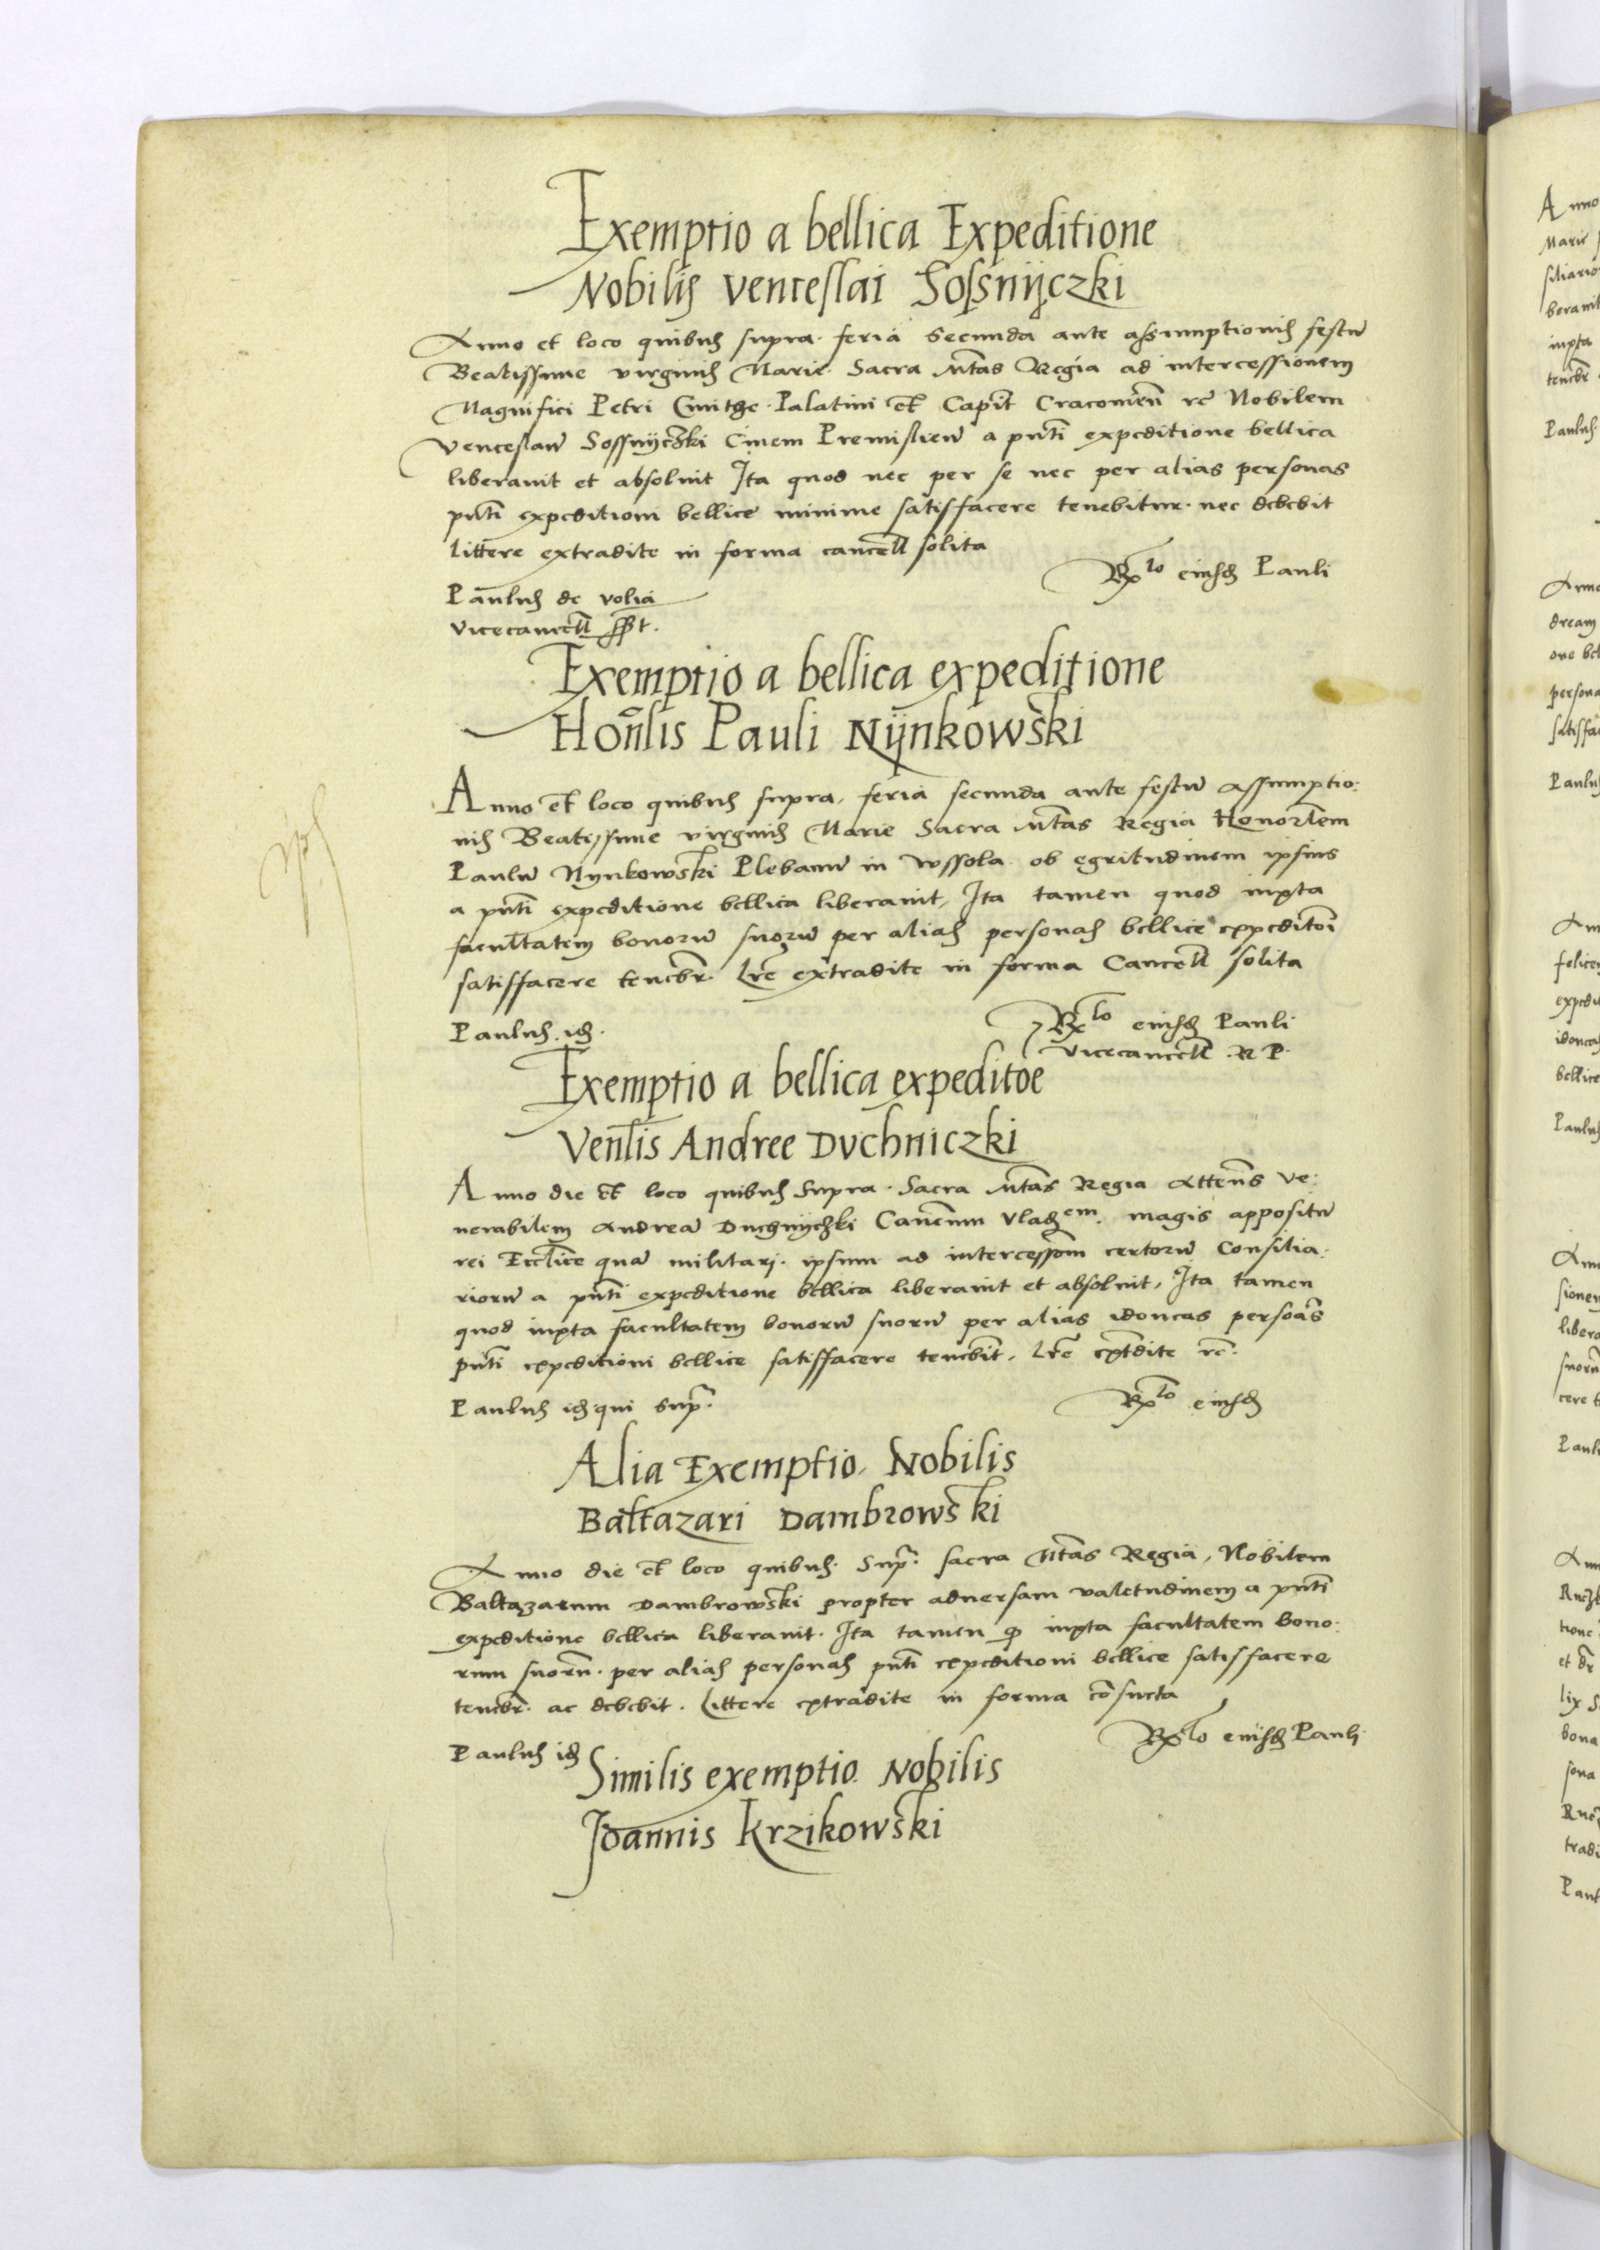 Exemptio a bellica Expeditione
Nobilis Venceslai Sossnijczki
Anno et loco quibus supra. feria Secunda ante assumptionis festu
Beatissime virginis Marie. Sacra Mtas Regia ad intercessionem
Magnifici Petri Cmithe. Palatini et Capit Cracovien rc Nobilem
Venceslau Sossnijczki Civem Premislien a pnti expeditione bellica
liberavit et absolvit Ita quod nec per se nec per alias personas
pnti expeditioni bellice minime satisfacere tenebitur. nec debebit
Littere extradite in forma cancell solita
Rlo eiusd Pauli
Paulus de volia
Vicecancell sst.
Exemptio a bellica expeditione
Honlis Pauli Nijnkowski
Anno et loco quibus supra, feria secunda ante festu Assumptio:
nis Beatissime virginis Marie Sacra Mtas Regia Honorlem
Paulu Nynkowski Plebanu in Wssola. ob egritudinem ipsius
a pnti expeditione bellica liberavit, Ita tamen quod iuxta
facultatem bonoru suoru per alias personas bellice expeditoi
satisfacere tenebr. Lre extradite in forma Cancell solita
Paulus. id.
Rlo eiusd Pauli
Vicecancell. R P.
Exemptio a bellica expeditoe
Venlis Andree Duchniczki
Anno die et loco quibus Supra. Sacra Mtas Regia Attens ve:
nerabilem Andrea Duchnyczki Canonum Vlad em. magis appositu
rei Ecclice qua militari. ipsum ad intercessom certoru Consilia:
rioru a pnti expeditione bellica liberavit et absolvit, Ita tamen
quod iuxta facultatem bonoru suoru per alias idoneas persoas
pnti expeditioni bellice satisfacere tenebit, Lre extdite rc.
Paulus id qui sup.
Rlo eiusd
Alia Exemptio. Nobilis
Baltazari Dambrowski
Anno die et loco quibus. Sup. sacra Mtas Regia, Nobilem
Baltazarum Dambrowski propter adversam valetudinem a pnti
expeditione bellica liberavit. Ita tamen q iuxta facultatem bono:
rum suoru. per alias personas pnti expeditioni bellice satisfacere
tenebr. ac debebit. Littere extradite in forma cosueta
Rlo eiusd Pauli
Paulus id
Similis exemptio. Nobilis
Joannis Krzikowski